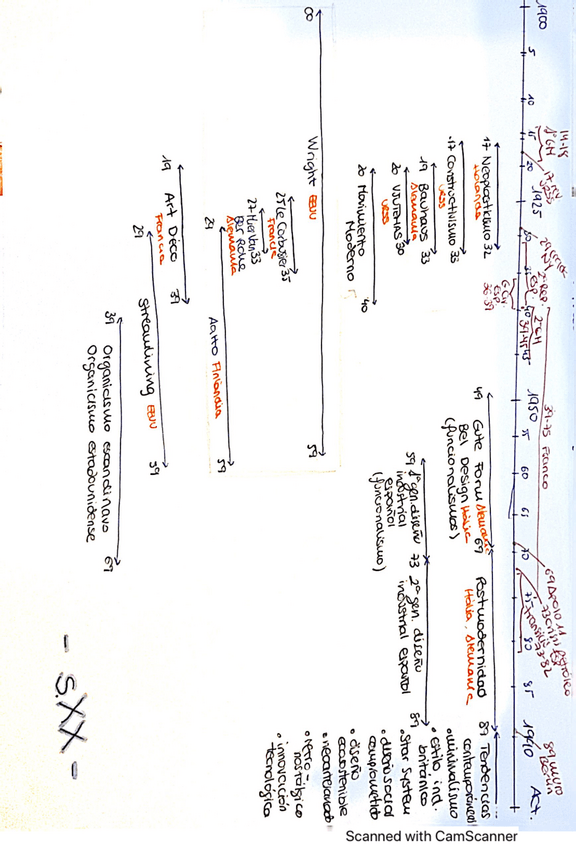 1900 5 10 15 20 1925 30 35 40 45 1950 55 60 65 70 75 80 85 1990 Act.
14-18
1ª GM
17 RV
29 crac
NY
2ª Rep.
ESP
GCiv
ESP
36-39
2ª GM
39-45
39-75 Franco
69 Apolo 11
73 crisis petróleo
75 transición
ESP
77-82
89 muro
Berlín
17 Neoplasticismo 32
Holanda
17 Constructivismo 33
URSS
19 Bauhaus 33
Alemania
20 VJUTEMAS 30
URSS
20 Movimiento
Moderno
40
49 Gute Form Alemania 69
Bel Design Italia
(funcionalismos)
Postmodernidad 89
Italia, Alemania
Tendencias
contemporáneas
• minimalismo
• estilo ind.
británico
• Star System
• diseño social
comprometido
• diseño
ecosostenible
• neoartesanado
• retro-
nostálgico
• innovación
tecnológica
59 1ª gen. diseño 73
industrial
español
(funcionalismo)
2ª gen. diseño 89
industrial español
00 Wright EEUU 59
25 Le Corbusier 35
Francia
27 33
Alemania
29 Aalto Finlandia 59
19 Art Déco 39
Francia
29 Streamlining EEUU 59
39 Organicismo escandinavo 69
Organicismo estadounidense
- S.XX -
Scanned with CamScanner